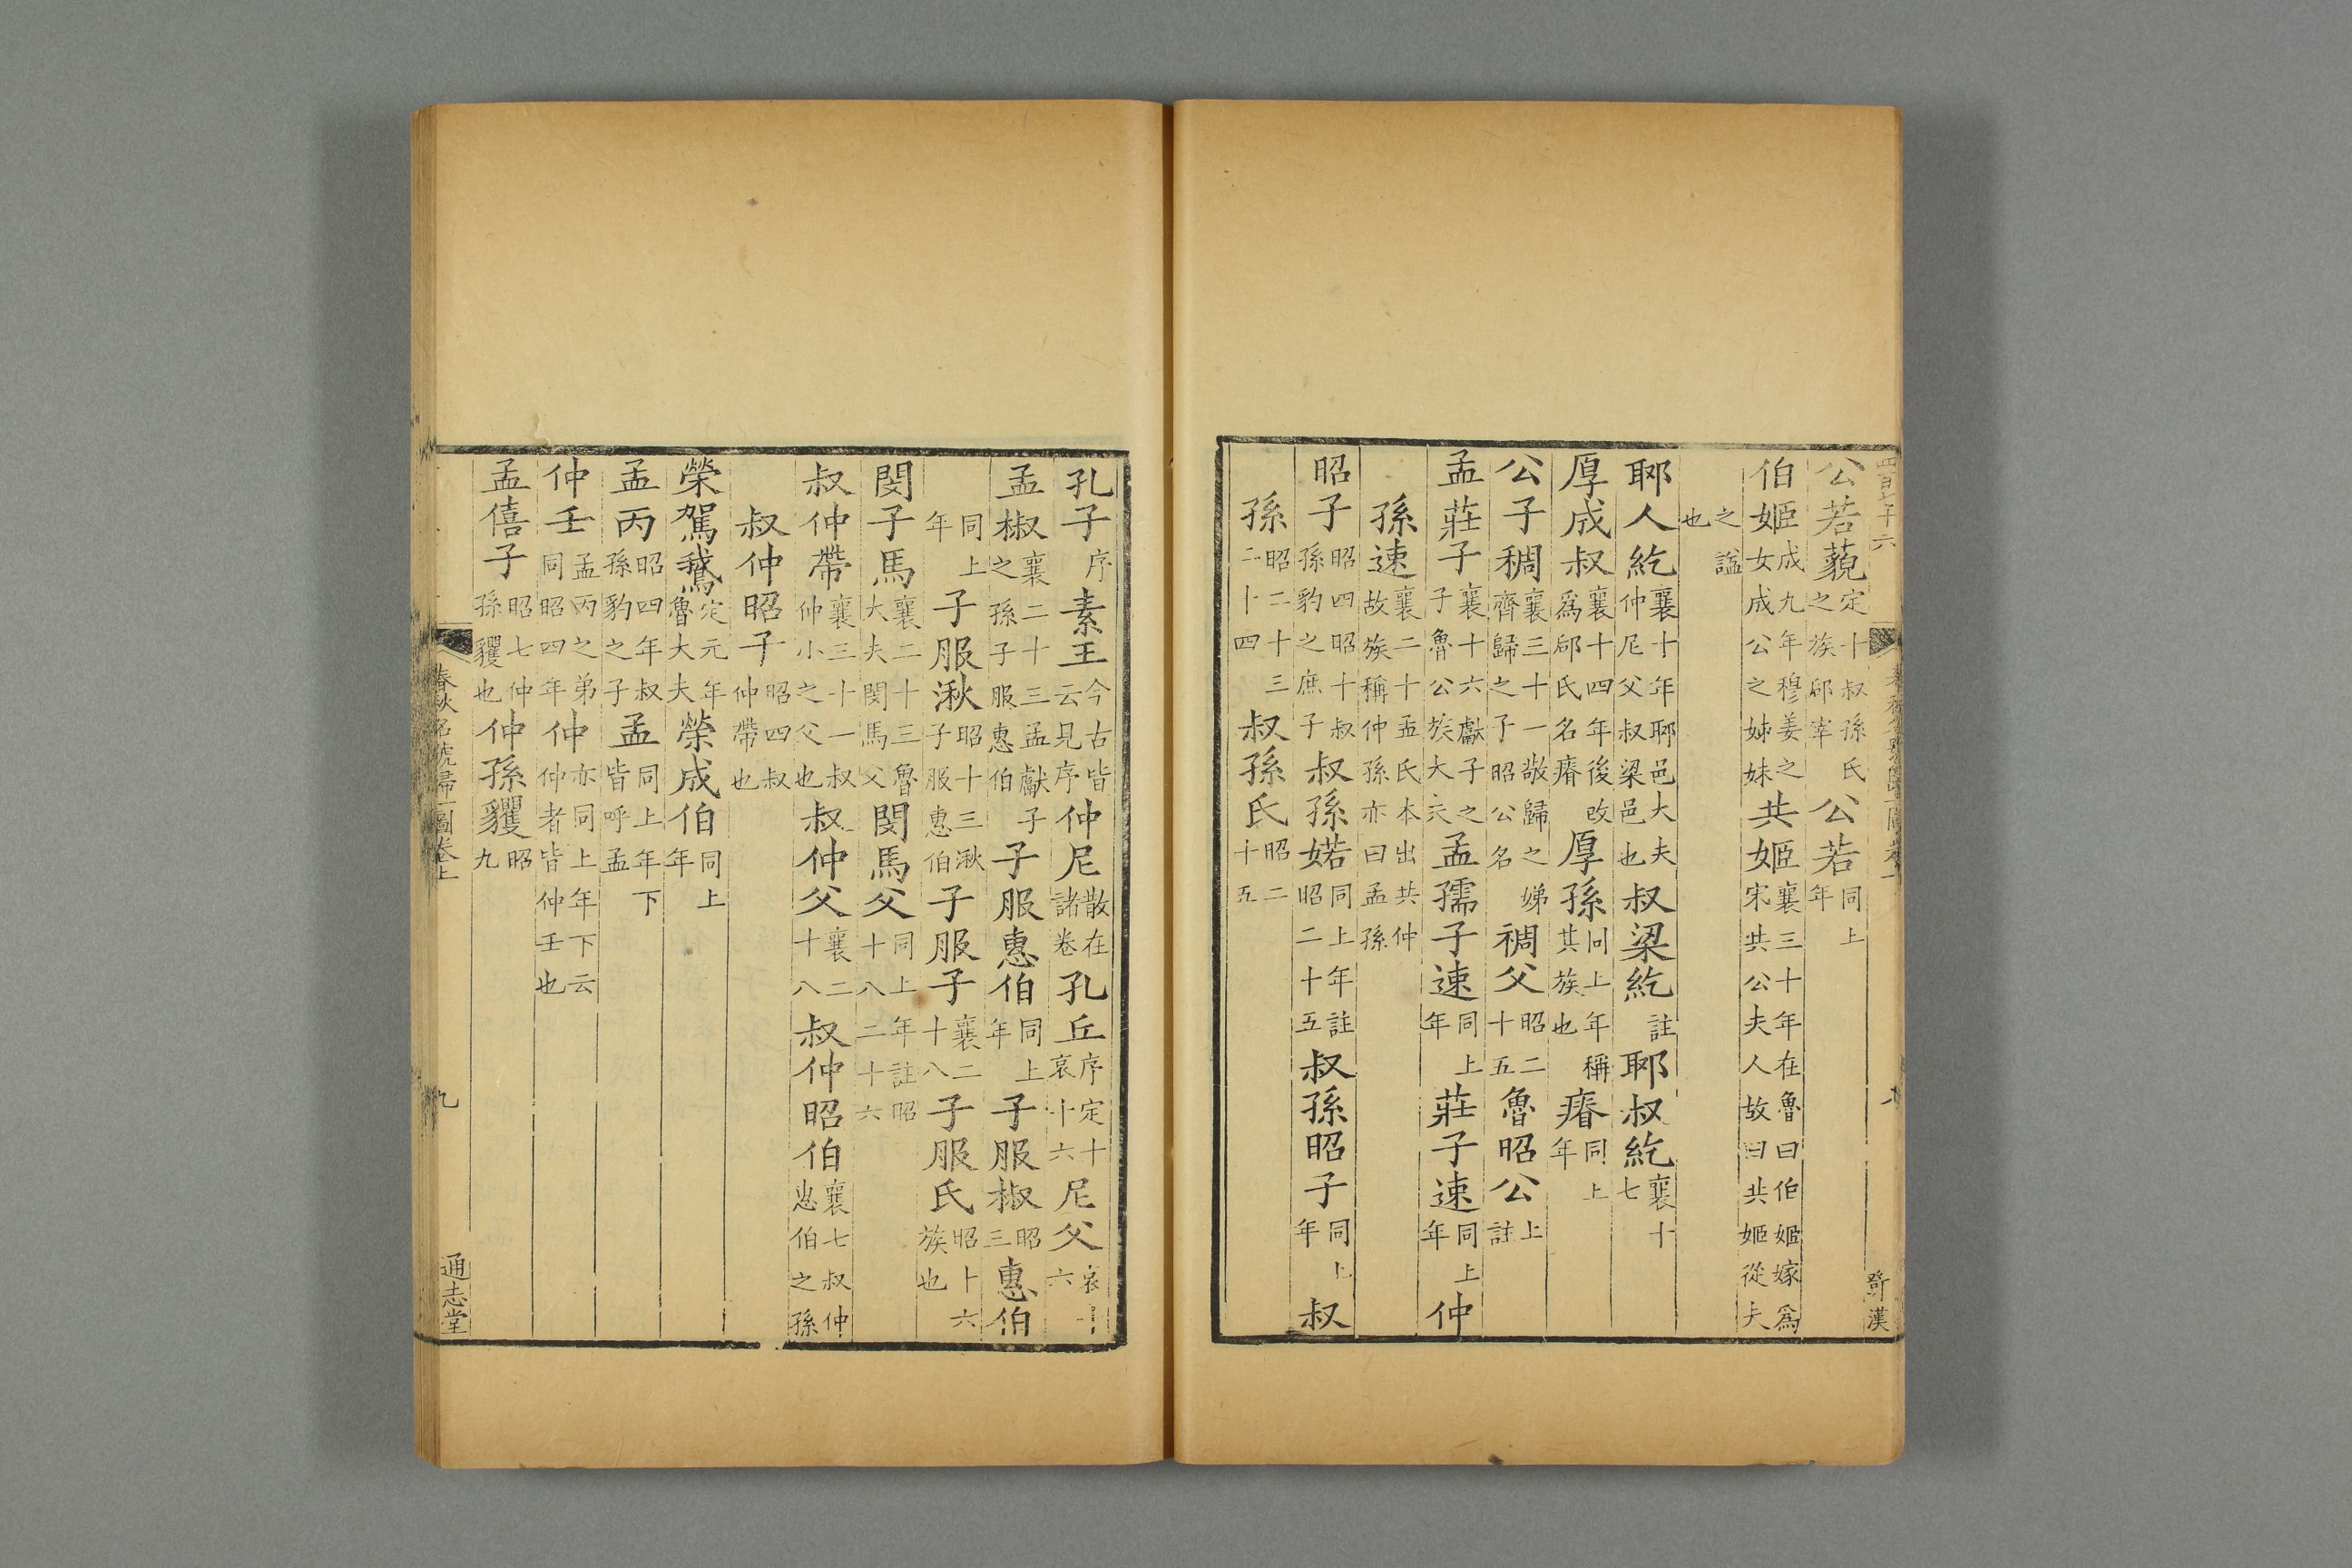 四百七十六
公若藐定十叔孫氏之族郈宰公若同上年
伯姬成九年穆姜之女成公之姊妹共姬襄三十年在魯曰伯姬嫁爲宋共公夫人故曰共姬從夫
之謚也
郰人紇襄十年郰邑大夫仲尼父叔梁邑也叔梁紇註郰叔紇襄十七
厚成叔襄十四年後改爲郈氏名瘠厚孫同上年稱其族也瘠同上年
公子稠襄三十一敬歸之娣齊歸之子昭公名裯父昭二十五魯昭公上註
孟莊子襄十六獻子之子魯公族大夫孟孺子速同上年莊子速同上年仲
孫速襄二十孟氏本出共仲故族稱仲孫亦曰孟孫
昭子昭四昭十叔孫豹之庶子叔孫婼同上年註昭二十五叔孫昭子同上年叔
孫昭二十三二十四叔孫氏昭二十五
八
鄧漢
孔子序素王今古皆云見序仲尼散在諸卷孔丘序定十哀十六尼父哀十六
孟椒襄二十三孟獻子之孫子服惠伯子服惠伯同上年子服椒昭三惠伯
同上年子服湫昭十三湫子服惠伯子服子襄二十八子服氏昭十六族也
閔子馬襄二十三魯大夫閔馬父閔馬父同上年註昭十八二十六
叔仲帶襄三十一叔仲小之父也叔仲父襄二十八叔仲昭伯襄七叔仲惠伯之孫
叔仲昭子昭四叔仲帶也
榮駕鵞定元年魯大夫榮成伯同上年
孟丙昭四年叔孫豹之子孟同上年下皆呼孟
仲壬孟丙之弟同昭四年仲亦同上年下云仲者皆仲壬也
孟僖子昭七仲孫貜也仲孫貜昭九
春秋名號歸一圖卷上
九
通志堂